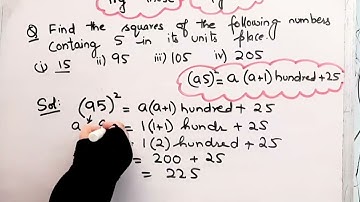 Q Find the squares of the following numbers
Containg 5 in its units place.
(i) 15 ii) 95 iii) 105 iv) 205
(a5)² = a (a+1) hundred + 25
Sol: (a5)² = a(a+1) hundred + 25
= 1(1+1) hundr + 25
= 1(2) hundred + 25
= 200 + 25
= 225